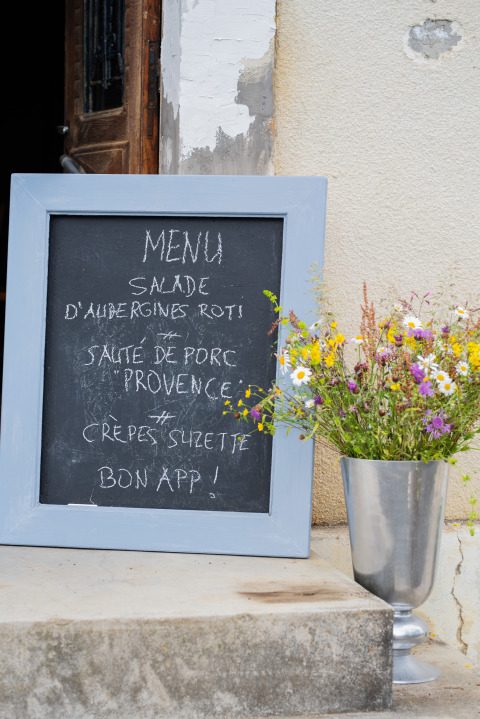 MENU
SALADE
D'AUBERGINES ROTI
#
SAUTÉ DE PORC
"PROVENCE"
#
CRÈPES SUZETTE
BON APP !